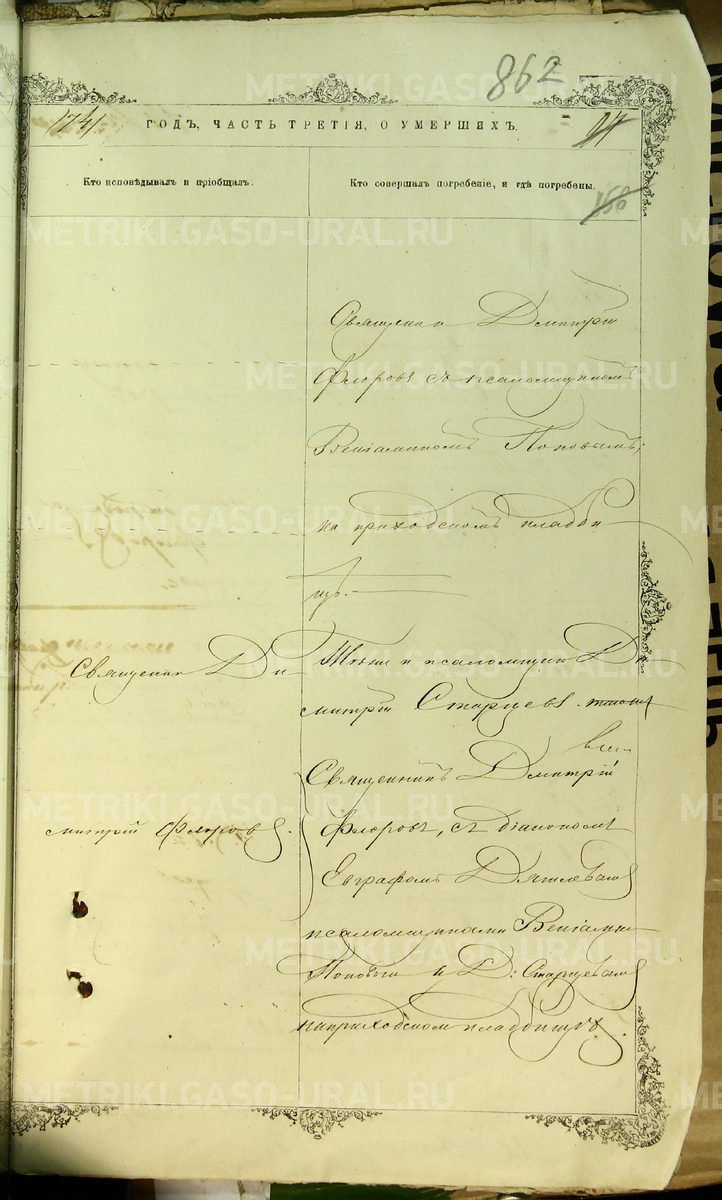 862
1741
ГОДЪ, ЧАСТЬ ТРЕТІЯ, О УМЕРШИХЪ.
Кто исповѣдывалъ и пріобщалъ.
Кто совершалъ погребеніе, и гдѣ погребены.
Священник Дмитрій
Флоровъ съ псаломщикомъ
Веніаминомъ Поповымъ;
на приходскомъ кладби
щѣ.
Священник Дми
митрій Флоровъ.
Тѣже и псаломщик Д
митрій Старцевъ.
Священникъ Дмитрій
Флоровъ, съ діакономъ
Евграфомъ
псаломщиками Веніамин
Поповым и Д: Старцевым
на приходском кладбищѣ.
METRIKI.GASO-URAL.RU